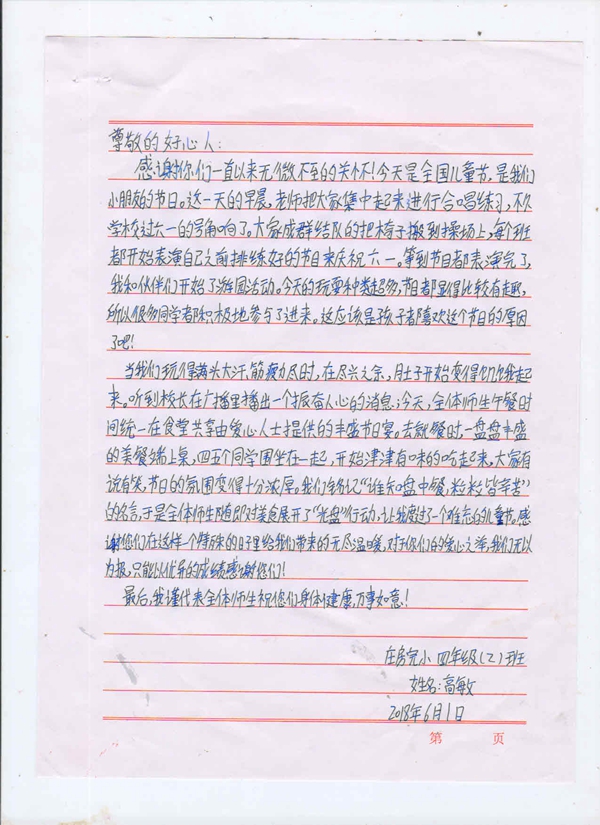 尊敬的好心人：
感谢你们一直以来无微不至的关怀！今天是全国儿童节，是我们
小朋友的节日。这一天的早晨，老师把大家集中起来进行合唱练习，不久
学校过六一的号角响了。大家成群结队的把椅子搬到操场上，每个班
都开始表演自己之前排练好的节目来庆祝六一。等到节目都表演完了，
我和伙伴们开始了游园活动。今天的玩耍种类超多，节目都显得比较有趣，
所以很多同学者都积极地参与了进来。这应该是孩子者喜欢这个节日的原因
了吧！
当我们玩得满头大汗、筋疲力尽时，在尽兴之余，肚子开始变得饥饿起
来。听到校长在广播里播出一个振奋人心的消息：今天，全体师生午餐时
间统一在食堂共享由爱心人士提供的丰盛节日宴。去就餐时，一盘盘丰盛
的美餐端上桌，四五个同学围坐在一起，开始津津有味的吃起来，大家有
说有笑，节日的氛围变得十分浓厚。我们铭记“谁知盘中餐，粒粒皆辛苦”
的名言，于是全体师生随即对美食展开了“光盘”行动，让我度过了个难忘的儿童节。感
谢您们在这样一个特殊的日子里给我们带来的无尽温暖，对于你们的爱心之泽，我们无以
为报，只能以优异的成绩感谢您们！
最后，我谨代表全体师生祝您们身体健康，万事如意！
庄房完小 四年级（乙）班
姓名：高敏
2018年6月1日
第 页